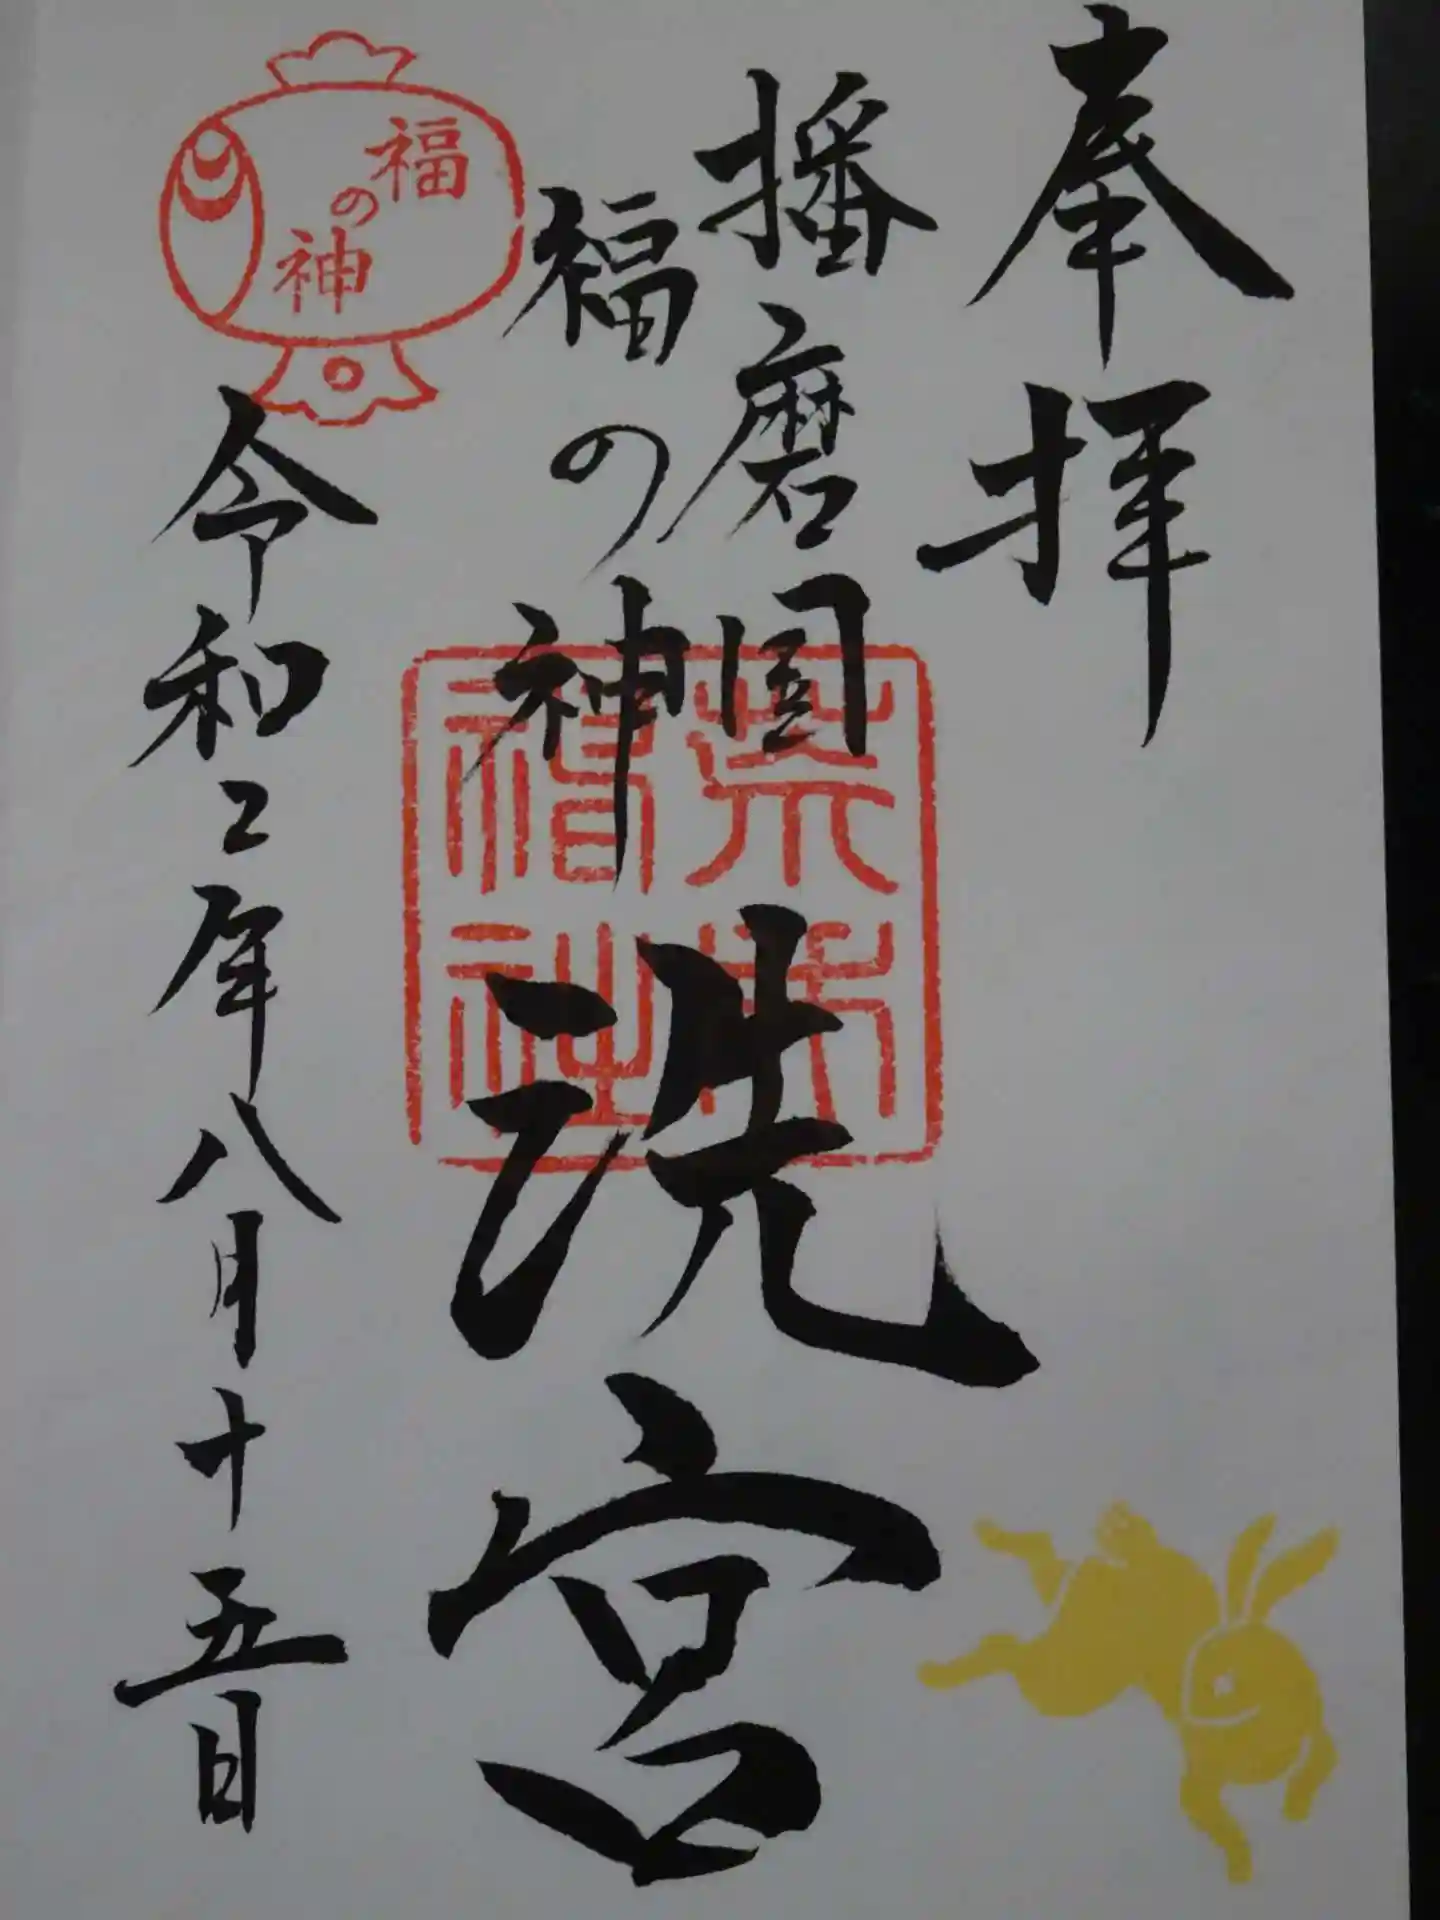 奉拝
播磨国
福の神
洗宮
荒井
神社
福の神
令和二年八月十五日